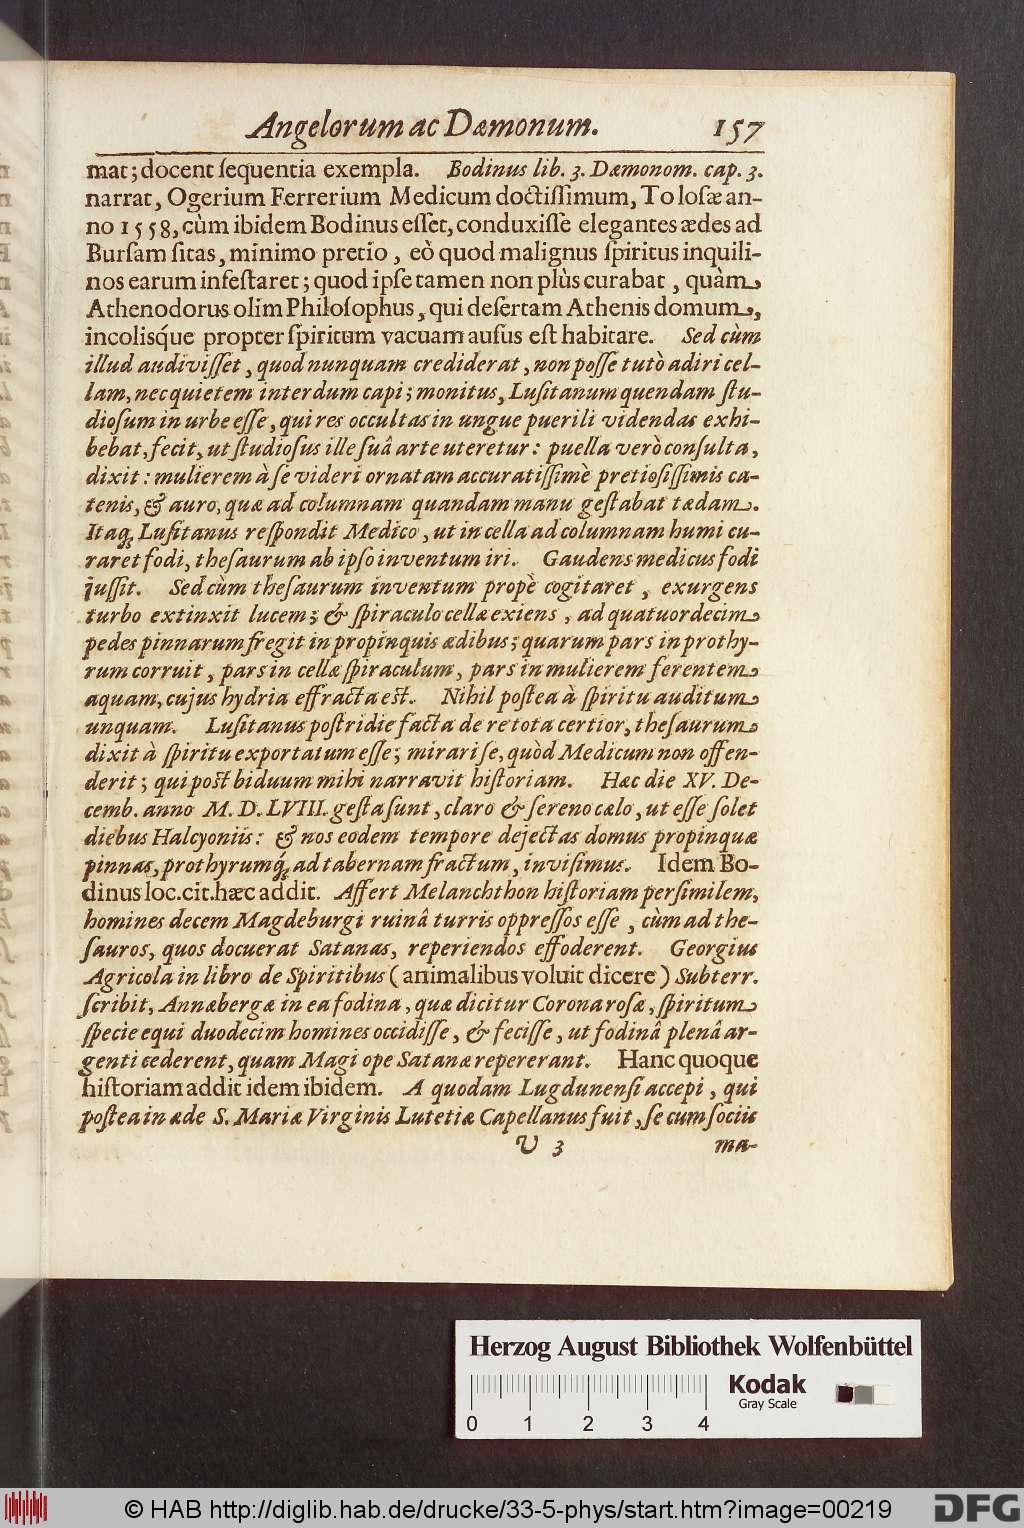 Angelorum ac Dæmonum. 157
mat; docent ſequentia exempla. Bodinus lib. 3. Dæmonom. cap. 3.
narrat, Ogerium Ferrerium Medicum doctiſſimum, To loſæ an-
no 1558, cùm ibidem Bodinus eſſet, conduxiſſe elegantes ædes ad
Burſam ſitas, minimo pretio, eò quod malignus ſpiritus inquili-
nos earum infeſtaret; quod ipſe tamen non plùs curabat, quàm
Athenodorus olim Philoſophus, qui deſertam Athenis domum,
incolisq́ue propter ſpiritum vacuam auſus eſt habitare. Sed cùm
illud audiviſſet, quod nunquam crediderat, non poſſe tutò adiri cel-
lam, nec quietem interdum capi; monitus, Luſitanum quendam ſtu-
dioſum in urbe eſſe, qui res occultas in ungue puerili videndas exhi-
bebat, fecit, ut ſtudioſus ille ſuâ arte uteretur: puella verò conſulta,
dixit: mulierem à ſe videri ornatam accuratiſſimè pretioſiſſimis ca-
tenis, & auro, quæ ad columnam quandam manu geſtabat tædam.
Itaq; Luſitanus reſpondit Medico, ut in cella ad columnam humi cu-
raret fodi, theſaurum ab ipſo inventum iri. Gaudens medicus fodi
juſſit. Sed cùm theſaurum inventum propè cogitaret, exurgens
turbo extinxit lucem; & ſpiraculo cellæ exiens, ad quatuordecim
pedes pinnarum fregit in propinquis ædibus; quarum pars in prothy-
rum corruit, pars in cellæ ſpiraculum, pars in mulierem ferentem
aquam, cujus hydria effracta eſt. Nihil poſtea à ſpiritu auditum
unquam. Luſitanus poſtridie facta de re tota certior, theſaurum
dixit à ſpiritu exportatum eſſe; mirari ſe, quòd Medicum non offen-
derit; qui poſt biduum mihi narravit hiſtoriam. Hæc die XV. De-
cemb. anno M. D. LVIII. geſta ſunt, claro & ſereno cælo, ut eſſe ſolet
diebus Halcyoniis: & nos eodem tempore dejectas domus propinquæ
pinnas, prothyrumq́; ad tabernam fractum, inviſimus. Idem Bo-
dinus loc. cit. hæc addit. Affert Melanchthon hiſtoriam perſimilem,
homines decem Magdeburgi ruinâ turris oppreſſos eſſe, cùm ad the-
ſauros, quos docuerat Satanas, reperiendos effoderent. Georgius
Agricola in libro de Spiritibus (animalibus voluit dicere) Subterr.
ſcribit, Annæbergæ in ea fodina, quæ dicitur Corona roſæ, ſpiritum
ſpecie equi duodecim homines occidiſſe, & feciſſe, ut fodinâ plenâ ar-
genti cederent, quam Magi ope Satanæ repererant. Hanc quoque
hiſtoriam addit idem ibidem. A quodam Lugdunenſi accepi, qui
poſtea in æde S. Mariæ Virginis Lutetiæ Capellanus fuit, ſe cum ſociis
V 3 ma-
Herzog August Bibliothek Wolfenbüttel
Kodak
Gray Scale
0 1 2 3 4
© HAB http://diglib.hab.de/drucke/33-5-phys/start.htm?image=00219
DFG